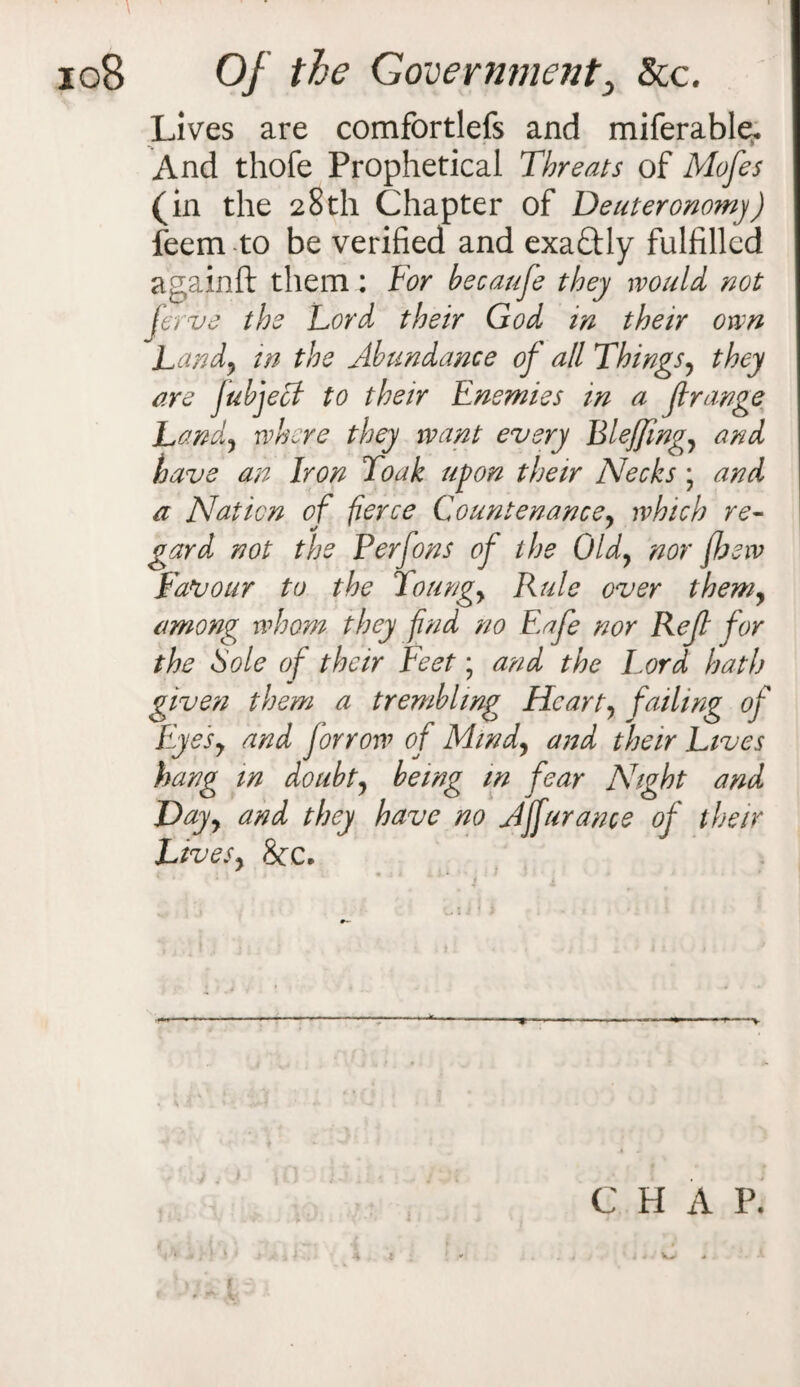 108 Of the Government, &c.
Lives are comfortleſs and miſerable.
And thoſe Prophetical Threats of Moſes
(in the 28th Chapter of Deuteronomy)
ſeem to be verified and exactly fulfilled
againſt them: For becauſe they would not
ſerve the Lord their God in their own
Land, in the Abundance of all Things, they
are ſubject to their Enemies in a ſtrange
Land, where they want every Bleſſing, and
have an Iron Yoak upon their Necks; and
a Nation of fierce Countenance, which re-
gard not the Perſons of the Old, nor ſhew
Favour to the Young, Rule over them,
among whom they find no Eaſe nor Reſt for
the Sole of their Feet; and the Lord hath
given them a trembling Heart, failing of
Eyes, and ſorrow of Mind, and their Lives
hang in doubt, being in fear Night and
Day, and they have no Aſſurance of their
Lives, &c.
CHAP.